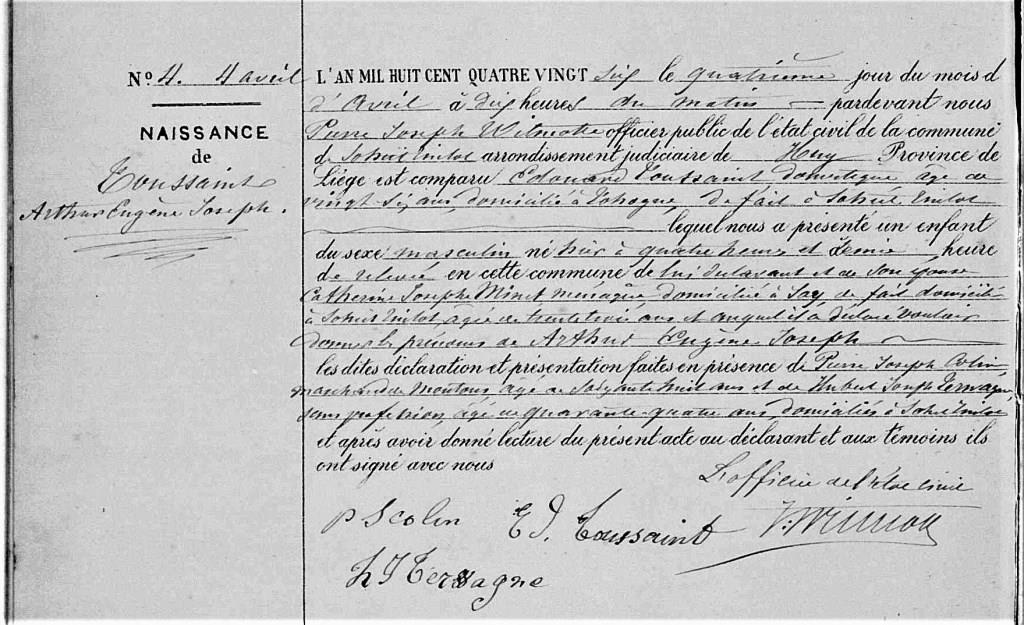 Nº 4. 4 avril
NAISSANCE
de
Toussaint
Arthur Eugène Joseph.
L'AN MIL HUIT CENT QUATRE VINGT six le quatrième jour du mois d
d'Avril à dix heures du matin pardevant nous
Pierre Joseph Wilmotte officier public de l'état civil de la commune
de Soheit Tinlot arrondissement judiciaire de Huy Province de
Liége est comparu Edouard Toussaint domestique agé de
vingt six ans, domicilié à de fait à Soheit Tinlot
lequel nous a présenté un enfant
du sexe masculin né hier à quatre heures et demie heure
de relevée en cette commune de lui déclarant et de son épouse
Catherine Josephe Minet ménagère, domiciliée à de fait domiciliée
à Soheit Tinlot, agée de trente trois ans et auquel il a déclaré vouloir
donner les prénoms de Arthur Eugène Joseph
les dites déclaration et présentation faites en présence de Pierre Joseph Colin
marchand de moutons, agé de soixante huit ans et de Hubert Joseph Tervagne,
sans profession, agé de quarante quatre ans domiciliés à Soheit Tinlot
et après avoir donné lecture du présent acte au déclarant et aux témoins ils
ont signé avec nous
L'officier de l'état civil
P J Colin E J. Toussaint
H J Tervagne